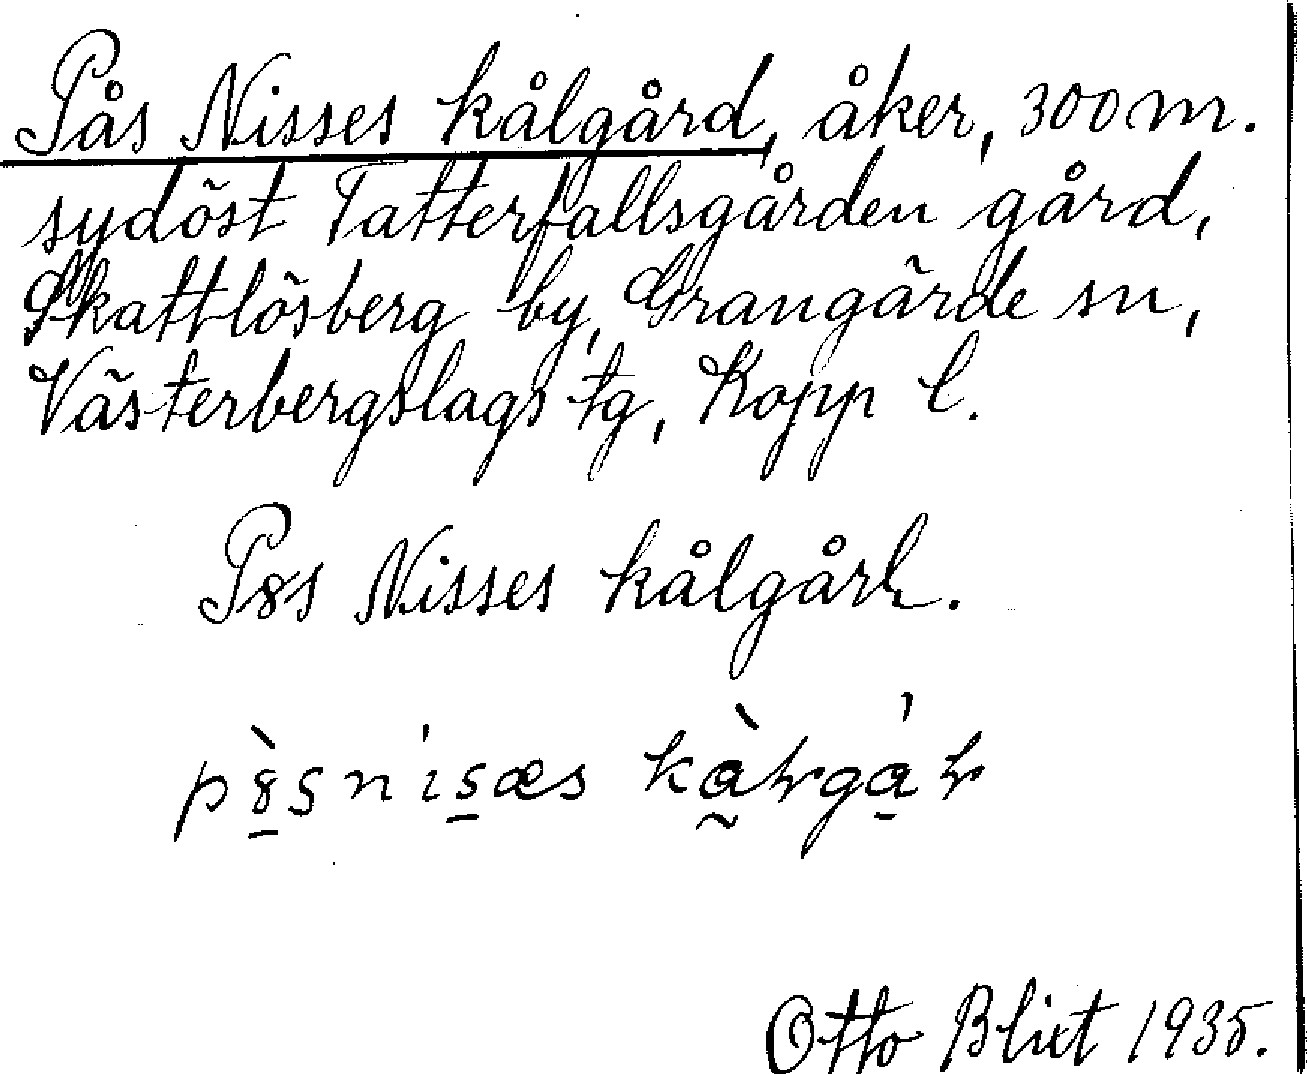 Pås Nisses kålgård, åker, 300 m.
sydöst Tatterfallsgården gård,
Skattlösberg by, Grangärde sn,
Västerbergslags tg, Kopp l.
P8s Nisses kålgårḷ.
Otto Blixt 1935.